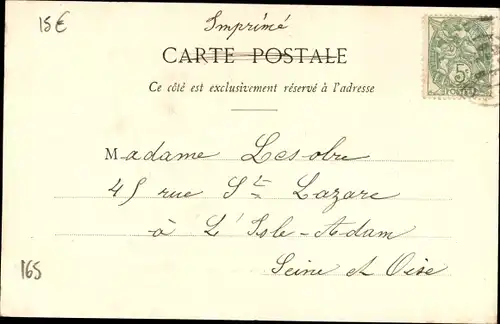 15€
Imprimé
CARTE POSTALE
Ce côté est exclusivement réservé à l'adresse
5c
POSTES
Madame Lesobre
45 rue St Lazare
à L'Isle-Adam
Seine et Oise
165